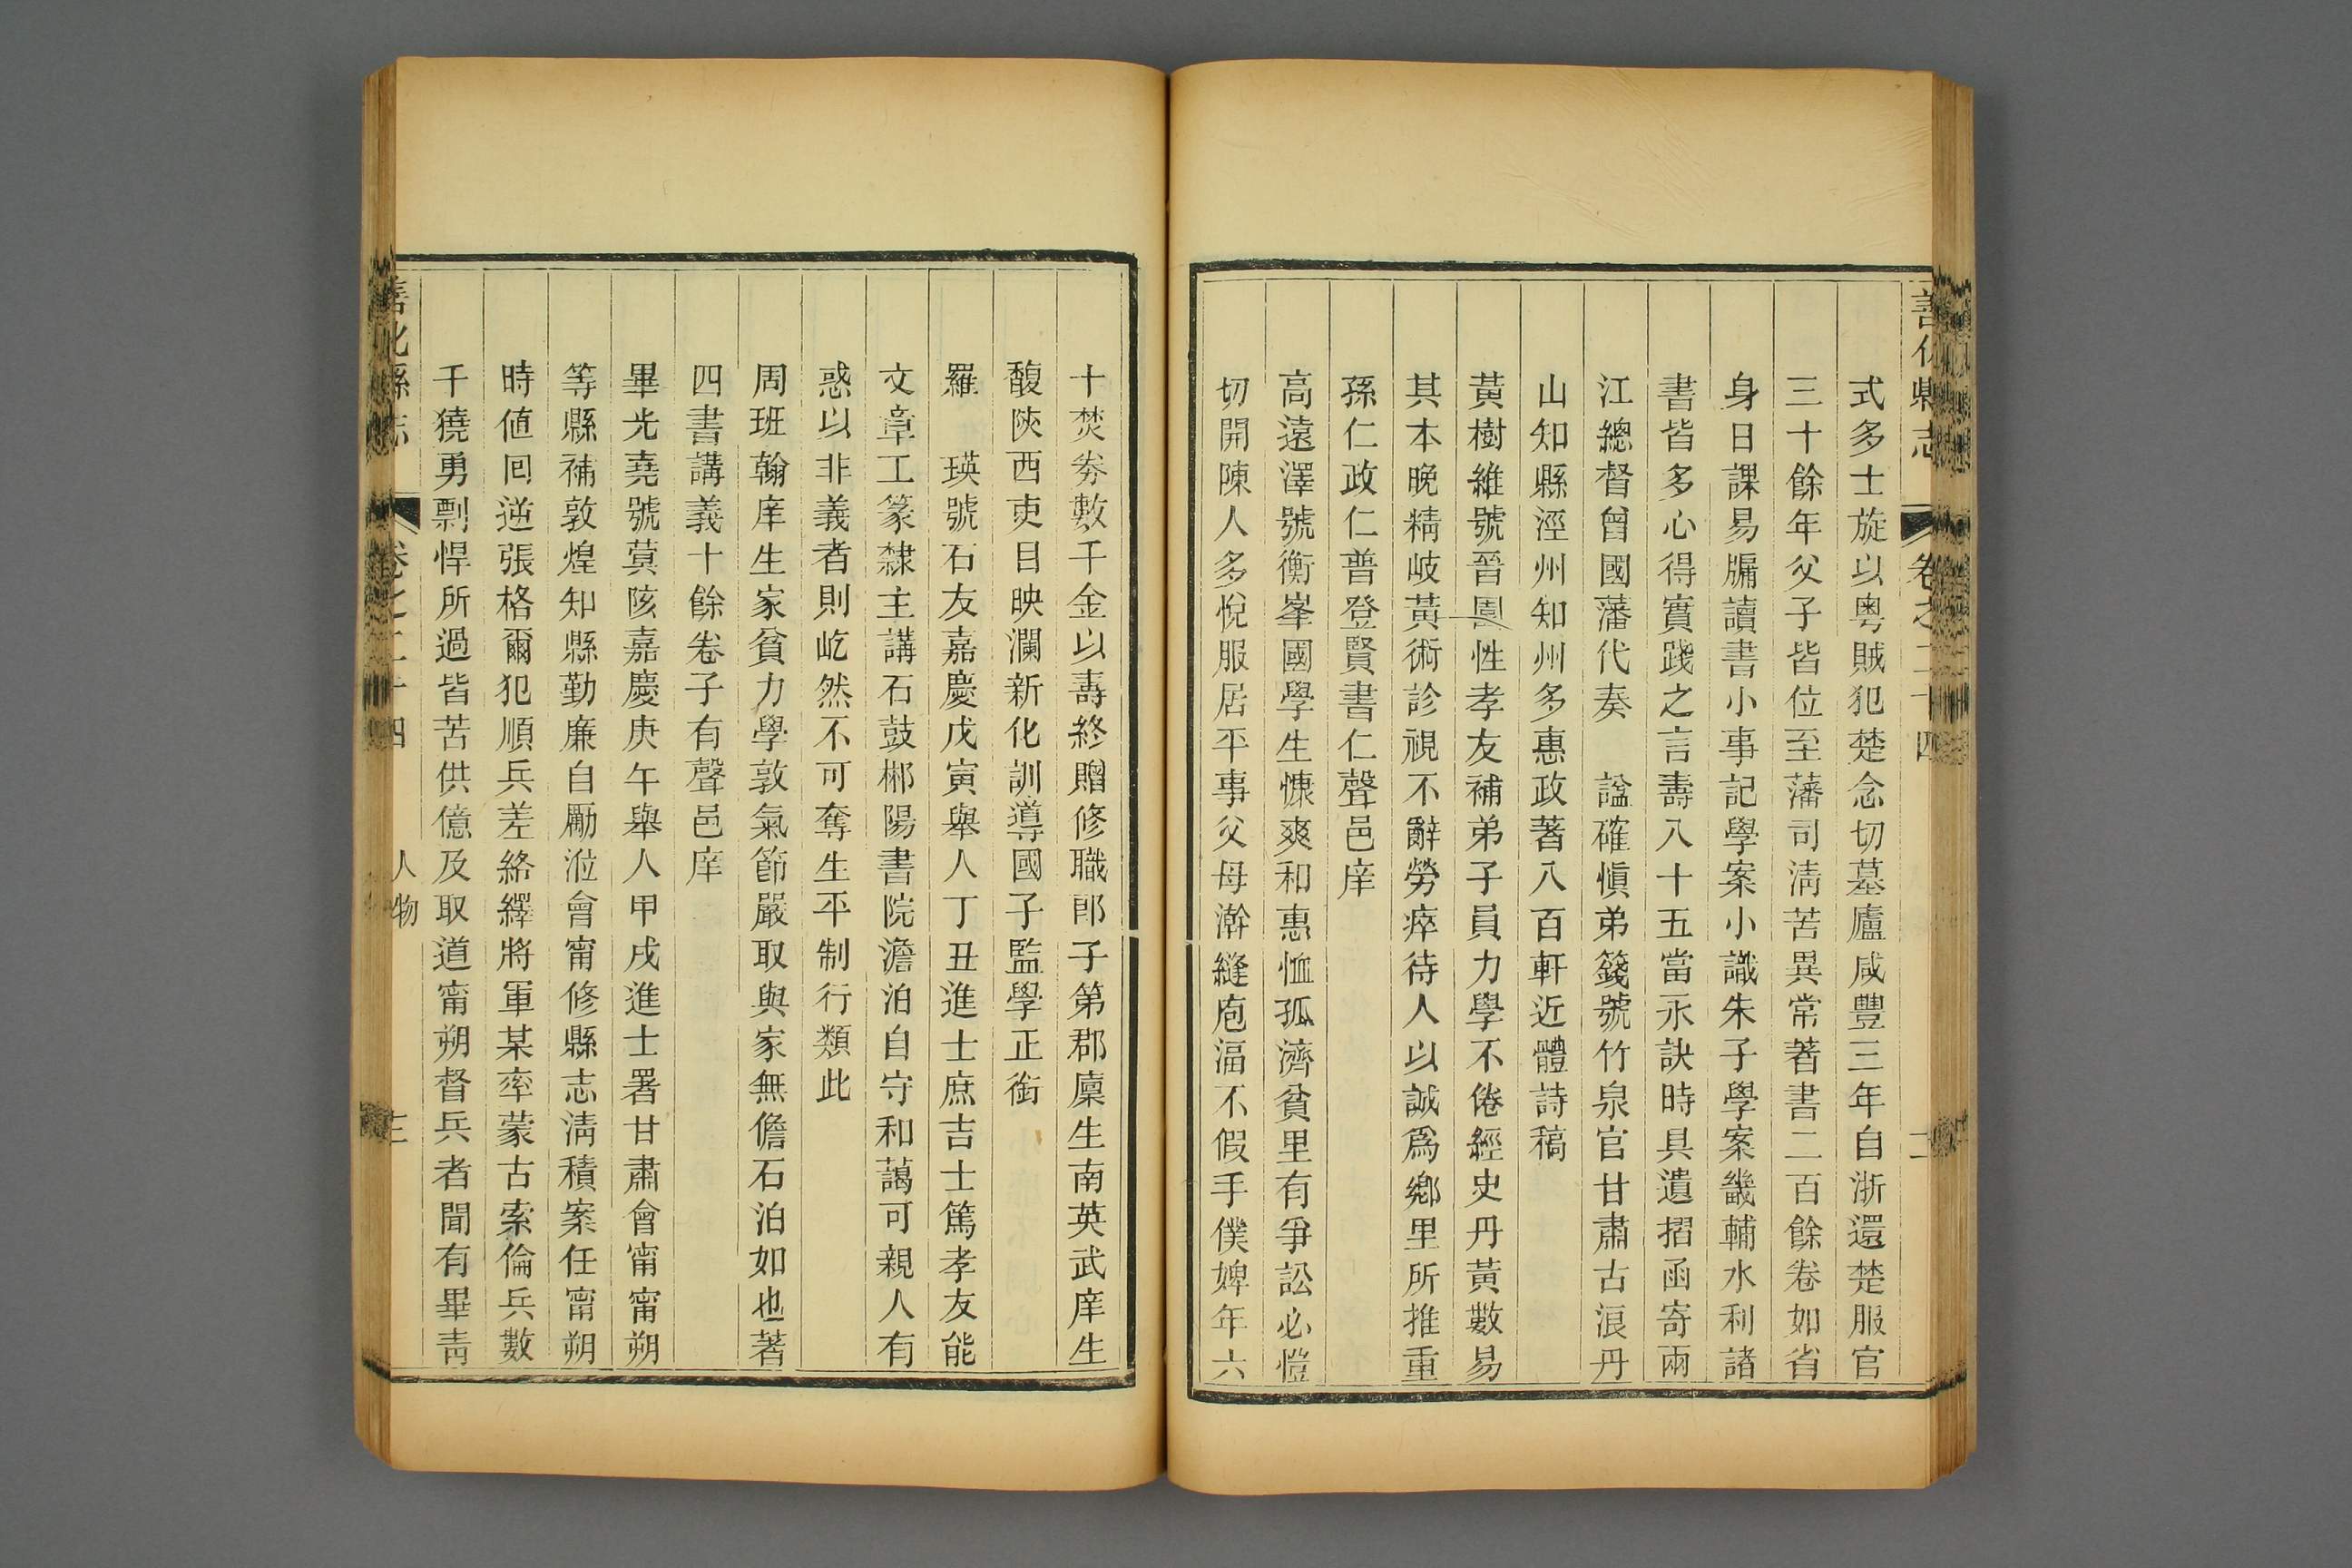 善化縣志 卷之二十四 二
式多士旋以粤賊犯楚念切墓廬咸豐三年自浙還楚服官
三十餘年父子皆位至藩司淸苦異常著書二百餘卷如省
身日課易牖讀書小事記學案小識朱子學案畿輔水利諸
書皆多心得實踐之言壽八十五當永訣時具遺摺函寄兩
江總督曾國藩代奏　諡確愼弟籛號竹泉官甘肅古浪丹
山知縣涇州知州多惠政著八百軒近體詩稿
黃樹維號晉園性孝友補弟子員力學不倦經史丹黃數易
其本晚精岐黃術診視不辭勞瘁待人以誠爲鄉里所推重
孫仁政仁普登賢書仁聲邑庠
高遠澤號衡峯國學生慷爽和惠恤孤濟貧里有爭訟必愷
切開陳人多悅服居平事父母澣縫庖湢不假手僕婢年六
十焚券數千金以壽終贈修職郎子第郡廩生南英武庠生
馥陜西吏目映瀾新化訓導國子監學正銜
羅　瑛號石友嘉慶戊寅舉人丁丑進士庶吉士篤孝友能
文章工篆隸主講石鼓郴陽書院澹泊自守和藹可親人有
惑以非義者則屹然不可奪生平制行類此
周班翰庠生家貧力學敦氣節嚴取與家無儋石泊如也著
四書講義十餘卷子有聲邑庠
畢光堯號蓂陔嘉慶庚午舉人甲戌進士署甘肅會甯甯朔
等縣補敦煌知縣勤廉自勵涖會甯修縣志淸積案任甯朔
時値回逆張格爾犯順兵差絡繹將軍某率蒙古索倫兵數
千獍勇剽悍所過皆苦供億及取道甯朔督兵者聞有畢靑
善化縣志 卷之二十四 人物 三